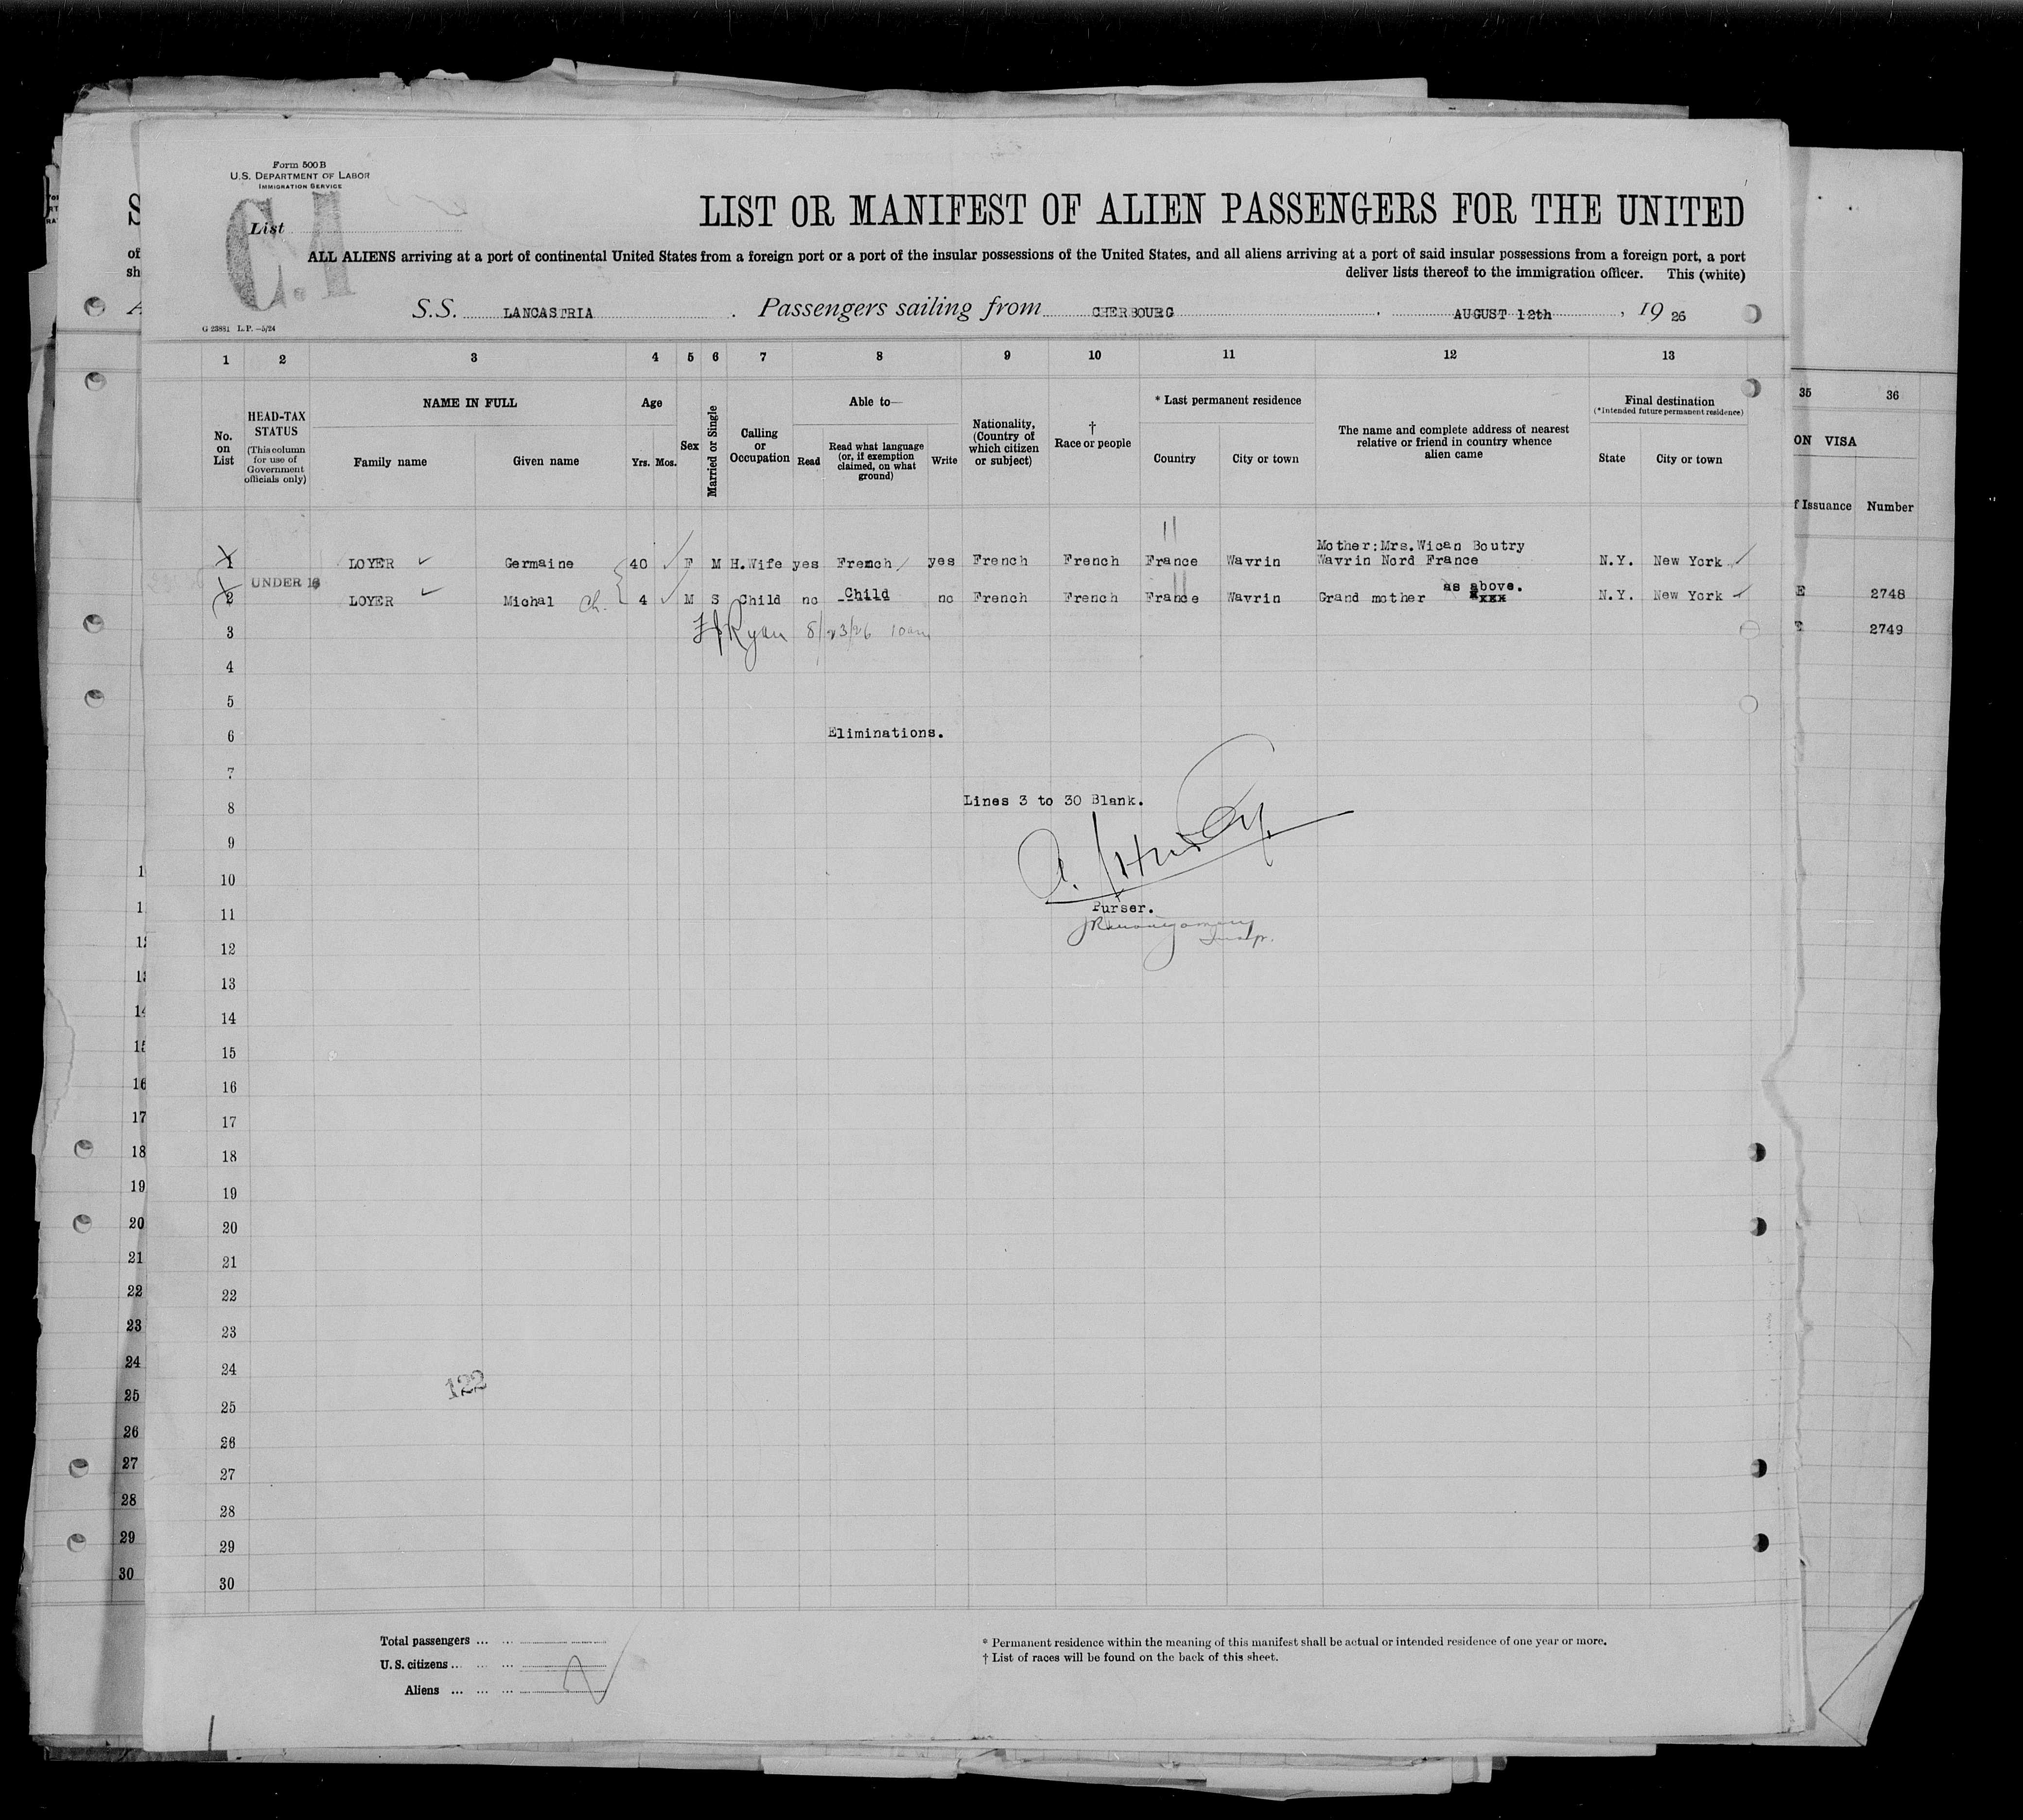 Form 500B
U.S. DEPARTMENT OF LABOR
IMMIGRATION SERVICE
C.1
List
LIST OR MANIFEST OF ALIEN PASSENGERS FOR THE UNITED
ALL ALIENS arriving at a port of continental United States from a foreign port or a port of the insular possessions of the United States, and all aliens arriving at a port of said insular possessions from a foreign port, a port
deliver lists thereof to the immigration officer. This (white)
S.S. LANCASTRIA. Passengers sailing from CHERBOURG. AUGUST 12th, 1926
G 23881 L.P.—5/24
1 2 3 4 5 6 7 8 9 10 11 12 13
No. on List
HEAD-TAX STATUS
(This column for use of Government officials only)
NAME IN FULL
Family name Given name
Age
Yrs. Mos.
Sex
Married or Single
Calling or Occupation
Able to—
Read
Read what language (or, if exemption claimed, on what ground)
Write
Nationality, (Country of which citizen or subject)
† Race or people
* Last permanent residence
Country City or town
The name and complete address of nearest relative or friend in country whence alien came
Final destination
(*Intended future permanent residence)
State City or town
35 36
ON VISA
f Issuance Number
Mother:Mrs.Wican Boutry
1 LOYER Germaine 40 F M H.Wife yes French yes French French France Wavrin Wavrin Nord France N.Y. New York
UNDER 16
as above.
2 LOYER Michal Ch. 4 M S Child no Child no French French France Wavrin Grand mother xxxx N.Y. New York
E 2748
3 Ryan 8/23/26 10am
E 2749
4
5
6 Eliminations.
7
8 Lines 3 to 30 Blank.
9
10
11 Purser.
12
13
14
15
16
17
18
19
20
21
22
23
24
122
25
26
27
28
29
30
Total passengers ... ...
U.S. citizens ... ... ...
Aliens ... ... ...
* Permanent residence within the meaning of this manifest shall be actual or intended residence of one year or more.
† List of races will be found on the back of this sheet.